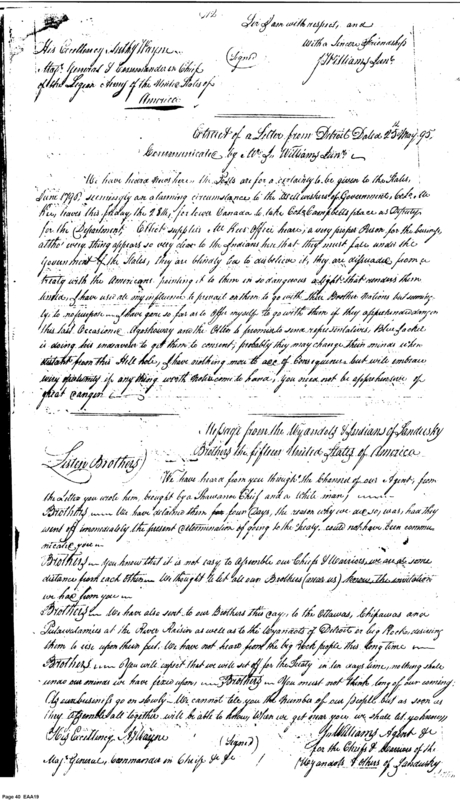 For I am with respect, and
With a Sincere Friendship
(Signd) J Williams Junr.
His Excellency Anthy Wayne
Majr. General & Commander in Chief
of the Legion Army of the United States of
America
Extract of a Letter from Detroit Dated 25th May 95.
Communicated by Mr. Js. Williams Junr.
We have heard
the Posts are for a certainty to be given to the States,
June 1796, seemingly an alarming circumstance to the wellwishers of Government, Colo. Mc
Kee, leaves this friday the 28th, for lower Canada to take Colo. Campbells place as Deputy
for the Department. Elliot supplies Mc Kees Office here; a very proper Person for the business
altho' every thing appears so very close to the Indians here that they must fall under the
Government of the States, they are blindly led to disbelieve it; they are dissuaded from a
treaty with the Americans painting it to them in so dangerous a light that renders them
timid, I have used all my influence to prevail on them to go with their Brother Nations but seeming-
ly to no purpose. I have gone so far as to offer myself to go with them if they apprehended danger in
this last Occasion. and the Otto to promise to send representatives. Blue Jacket
is doing his endeavor to get them to consent; probably they may change their minds when
distant from this Hell hole, I have nothing more to add of consequence but will embrace
every opportunity if any thing worth notice come to hand, You need not be apprehensive of
great danger
Message from the Wyandots & Indians of Sandusky
Brothers the fifteen United States of America
Listen Brothers)
We have heard from you through the Channel of our Agent, from
the Letter you wrote him, bought by a Shawanoe Chief and a white man;
Brothers We have detained them for four Days, the reason why we do so, was, had they
went off immediately the present determination of going to the Treaty could not have been commu-
nicated you
Brothers You know that it is not easy to assemble our Chiefs & Warriors, we are at some
distance from each other We thought to let all our Brothers (near us) know the invitation
we had from you
Brothers We have also sent to our Brothers this day, to the Ottawas, Chipawas and
Putawatamies at the River Raisin as well as to the Wyandots of Detroit or big Rock desiring
them to rise upon their feet. We have not heard from the big Rock people this long time
Brothers You will expect that we will set off for the Treaty in ten days time, nothing shall
undo our minds we have fixed upon Brothers You must not think long of our coming
As our business go on slowly We cannot tell you the Number of our People but as soon as
they assemble all together will be able to know, When we get near you we shall let you know
His Excellency Ay Wayne
(Signd) Js. Williams Agent &c
Majr. General, Commander in Chief &c &c
for the Chiefs & Warriors of the
Wyandots & others of Sandusky
Page 40 EAA19